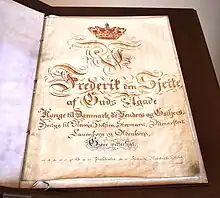 Frederik den Sjette
af Guds Naade
Konge til Danmark, de Venders og Gothers,
Hertug til Slesvig, Holsten, Stormarn, Ditmarsken,
Lauenborg og Oldenborg,
Giøre vitterligt: